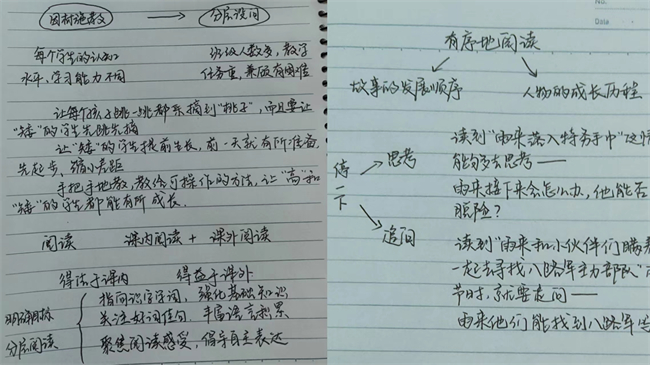 因材施教 → 分层设问
每个学生的认知 班级人数多,教学
水平、学习能力不同 任务重,兼顾有困难
让每个孩子跳一跳都能摘到“桃子”,而且要让
“矮”的学生先跳先摘
让“矮”的学生提前生长,前一天就有所准备,
先起步、缩小差距
手把手地教,教给可操作的方法,让“高”和
“矮”的学生都能有所成长.
阅读 课内阅读 + 课外阅读
得法于课内 得益于课外
明确目标 分层阅读
指向识字词,强化基础知识
关注好词佳句,丰富语言积累
聚焦阅读感受,倡导自主表达
No.
Date
有序地阅读
故事的发展顺序 人物的成长历程
停一下
思考
读到“雨来落入特务手中”这情
能够去思考——
雨来接下来会怎么办,他能否
脱险?
追问
读到“雨来和小伙伴们瞒着
一起去寻找八路军主力部队”
节时,就要追问——
雨来他们能找到八路军